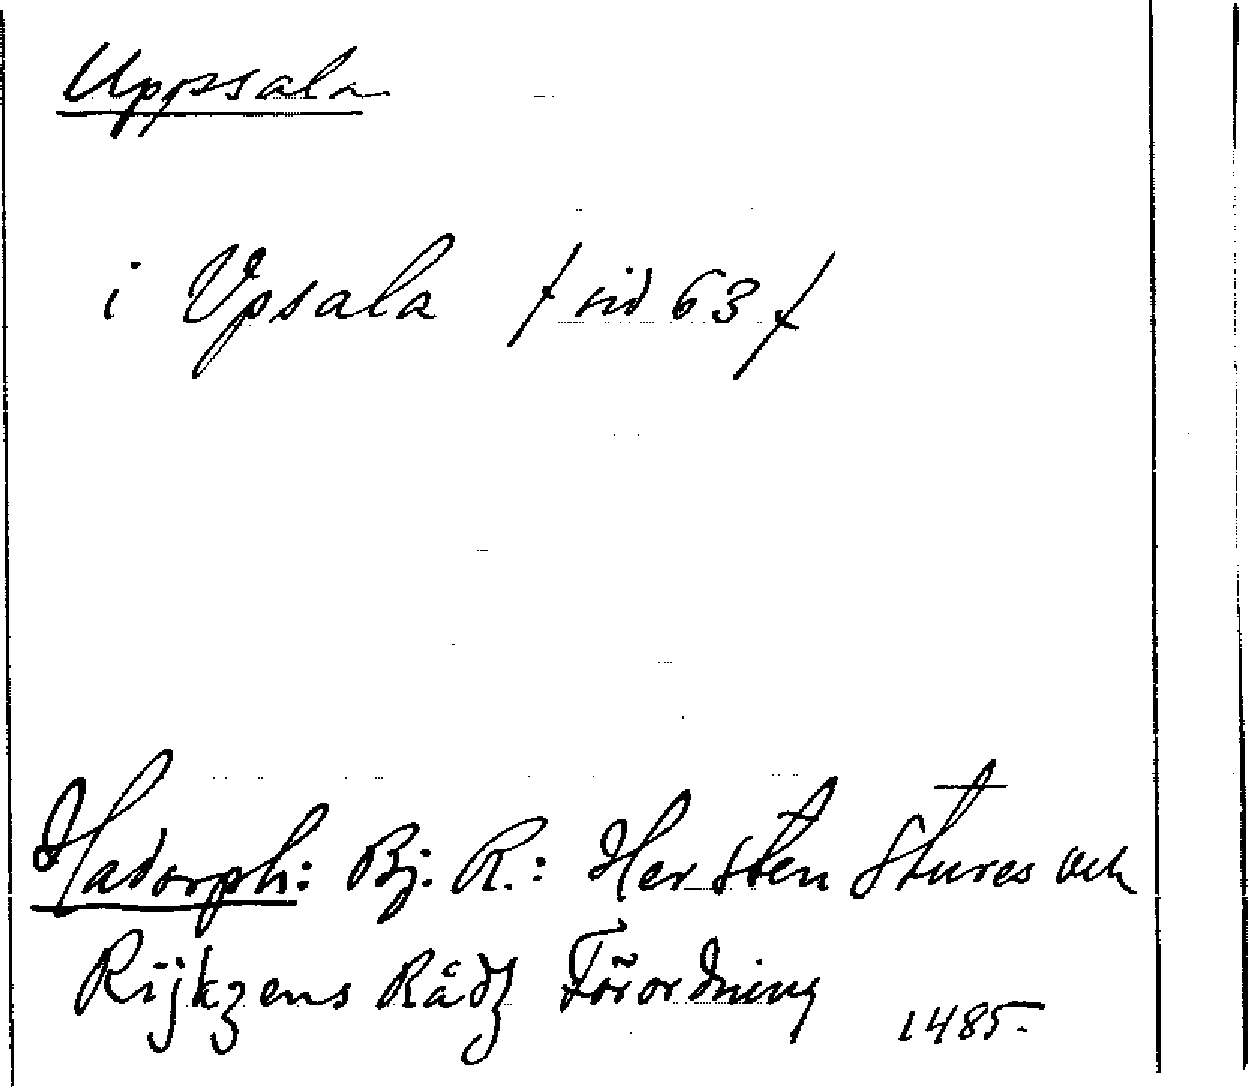 Uppsala
i Vpsala / sid 63 /
Hadorph: Bj. R.: Her Sten Stures och
Rijkzens Rådz Förordning 1485.